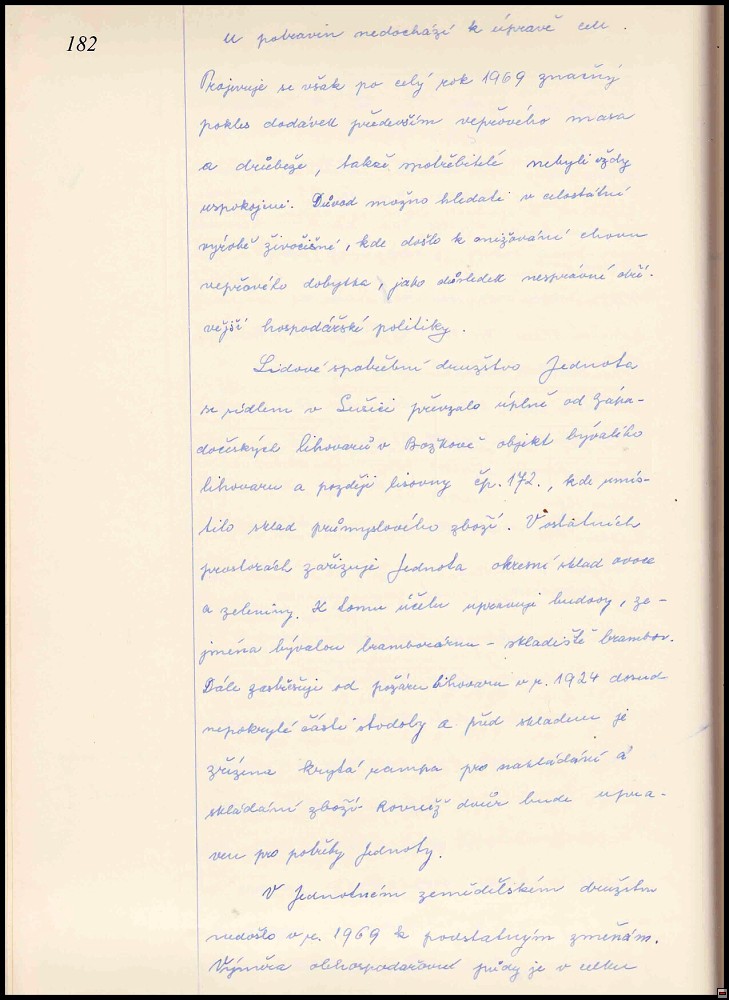 182
U potravin nedochází k úpravě cen.
Projevuje se však po celý rok 1969 značný
pokles dodávek především vepřového masa
a drůbeže, takže spotřebitelé nebyli vždy
uspokojeni. Důvod možno hledati v celostátní
výrobě živočišné, kde došlo k snižování chovu
vepřového dobytka, jako důsledek nesprávné dří-
vější hospodářské politiky.
Lidové spotřební družstvo Jednota
se sídlem v Sušici převzalo úplně od Zápa-
dočeských lihovarů v Božkově objekt bývalého
lihovaru a později lisovny čp. 172., kde umís-
tilo sklad průmyslového zboží. V ostatních
prostorách zařizuje Jednota okresní sklad ovoce
a zeleniny. K tomu účelu upravuje budovy, ze-
jména bývalou bramborárnu - skladiště brambor.
Dále zastřešuje od požáru lihovaru v r. 1924 dosud
nepokryté části stodoby a před skladem je
zřízena krytá rampa pro nakládání a
skládání zboží. Rovněž dvůr bude upra-
ven pro potřeby Jednoty.
V Jednotném zemědělském družstvu
nedošlo v r. 1969 k podstatným změnám.
Výměra obhospodařované půdy je v celku